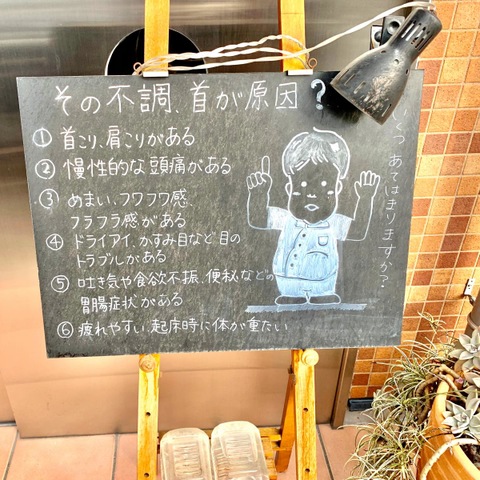 その不調、首が原因？
① 首こり、肩こりがある
② 慢性的な頭痛がある
③ めまい、フワフワ感、
フラフラ感がある
④ ドライアイ、かすみ目など目の
トラブルがある
⑤ 吐き気や食欲不振、便秘などの
胃腸症状がある
⑥ 疲れやすい、起床時に体が重たい
くつあてはまりますか？